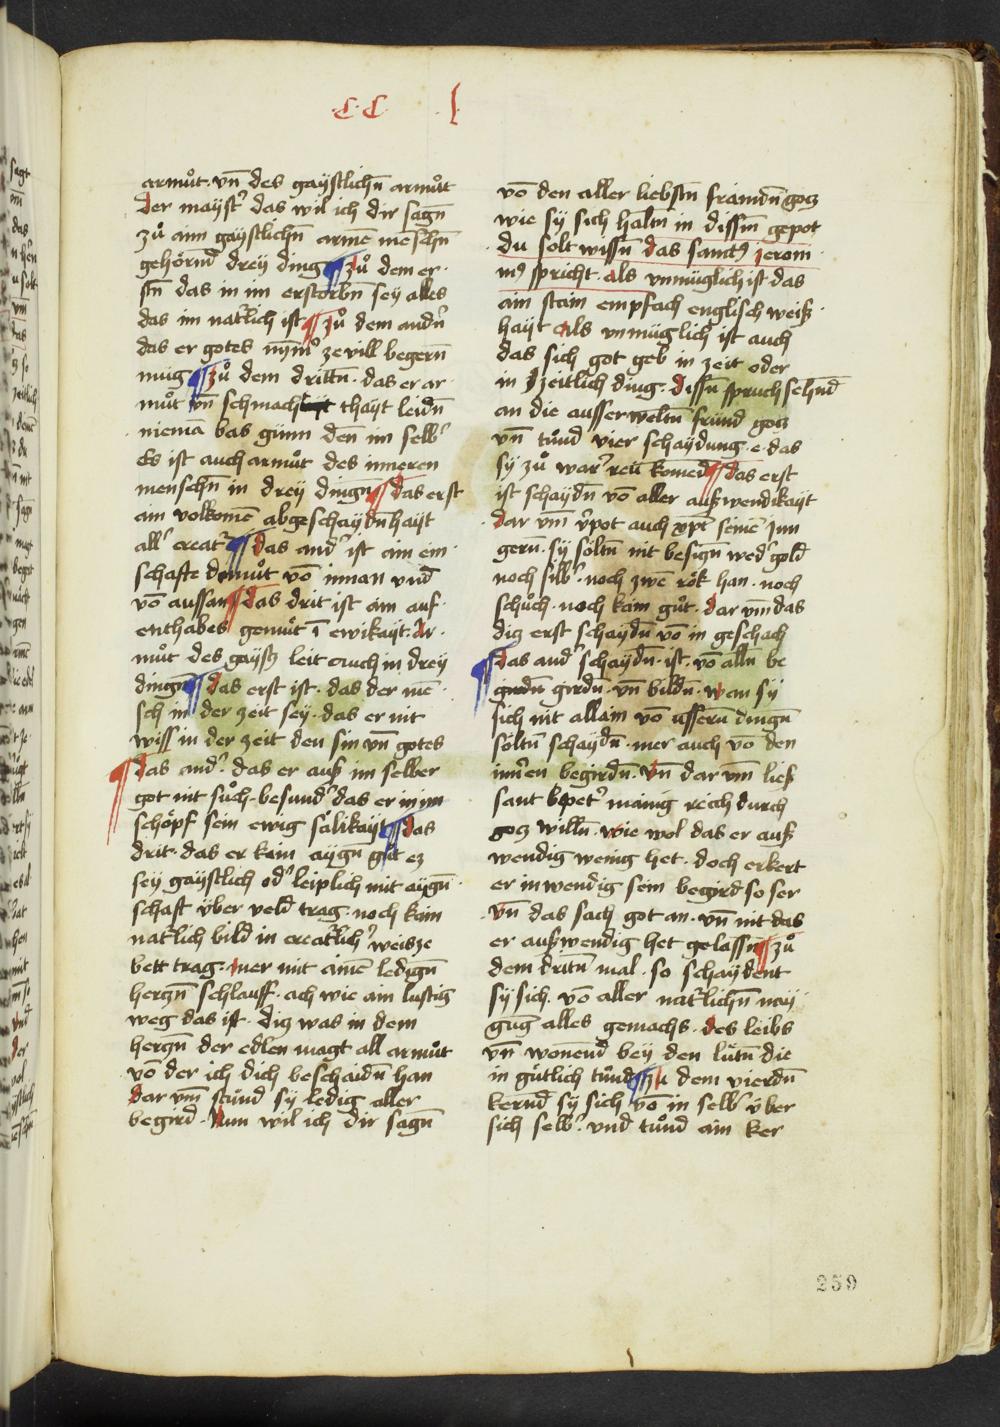 ·C·C· ·l·
armůt · vn̄ des gaÿstlichn̄ armůt
Der mayst᾽ das wil ich dir sagn̄
zů ainn gaÿstlichn̄ armē meschn̄
gehörnd dreÿ ding ¶ Zů dem er·
stn̄ das in im erstorbn̄ seÿ alles
das im natᷣlich ist ¶ Zů dem andn̄
das er gotes nÿm᾽ ze vill begern̄
mug ¶ Zů dem drittn̄ · das er ar·
műt vn̄ schmach thayt leidn̄
niemā bas günn den im selb᾽
Es ist auch armůt des inneren
menschn̄ in dreÿ dingn̄ ¶ das erst
ain volkomē abgeschaÿdn̄hayt
all᾽ creatᷣ ¶ Das and᾽ ist ain ein·
schafte demůt vō innan vnd
vō aussan ¶ das drit ist ain auf·
enthabes gemůt ī ewikayt · Ar·
műt des gaÿstz leit auch in dreÿ
dingn̄ ¶ das erst ist · das der mē·
sch in der zeit seÿ · das er nit
wiss in der zeit den sin vn̄ gotes
¶ Das and᾽ · das er auß im selber
got nit sůch · besund᾽ das er in im
schöpf sein ewig sälikayt ¶ das
drit · das er kain aygn̄ gůt ez
seÿ gaÿstlich od᾽ leiplich mit aygn̄·
schaft über veld trag · noch kain
natᷣlich bild in creatᷣlich᾽ weisze
bett trag · Mer mit aimē ledign̄
herczn̄ schlauff · ach wie ain lustig
weg das ist · dis was in dem
herczn̄ der edlen magt all armůt
vō der ich dich beschaidn̄ han
Dar vm̄ stůnd sÿ ledig aller
begird · Nun wil ich dir sagn̄
vō den aller liebstn̄ fraindn̄ gocz
wie sÿ sich haltn̄ in dissm̄ gepot
du solt wissn̄ das sanctꝰ Jeroni
mꝰ spricht · Als vnmüglich ist das
ain stain empfach englisch weiß·
hayt Als vnmüglich ist auch
das sich got geb in zeit oder
in zeitlich ding · Dissn̄ spruch sehnd
an die ausserweltn̄ fründ gocz
vn̄ tůnd vier schaÿdung · e · das
sÿ zů war᾽ reü komēd ¶ das erst
ist schaÿdn̄ vō aller außwendikayt
Dar vm̄ v᾽pot auch xp̄t seinē Jun
gern · sÿ söltn̄ nit besiczn̄ wed᾽ gold
noch silb᾽ · noch zwē rök han · noch
schůch · noch kain gůt · Dar vm̄ das
dis erst schaÿdn̄ vō in geschach
¶ Das and᾽ schaÿdn̄ · ist · vō alln̄ be
girdn̄ · vn̄ bildn̄ · wan sÿ
sich nit allain vō ussern̄ dingn̄
söltn̄ schaÿdn̄ · mer auch vō den
inn᾽en begirdn̄ · Vn̄ dar vm̄ ließ
sant pet᾽ mainig reich durch
gocz willn̄ · wie wol das er auß
wendig wenig het · doch erkert
er inwendig sein begird so ser
vn̄ das sach got an · vn̄ nit das
er außwendig het gelassn̄ ¶ Zů
dem dritn̄ mal · so schaÿdent
sÿ sich · vō aller natᷣlichn̄ nay·
gūg alles gemachs · des leibs
vn̄ wonend beÿ den lütn̄ die
in gütlich tůnd ¶ Zu dem vierdn̄
kernd sÿ sich vō in selb᾽ über
sich selb᾽ · vnd tůnd ain ker
259